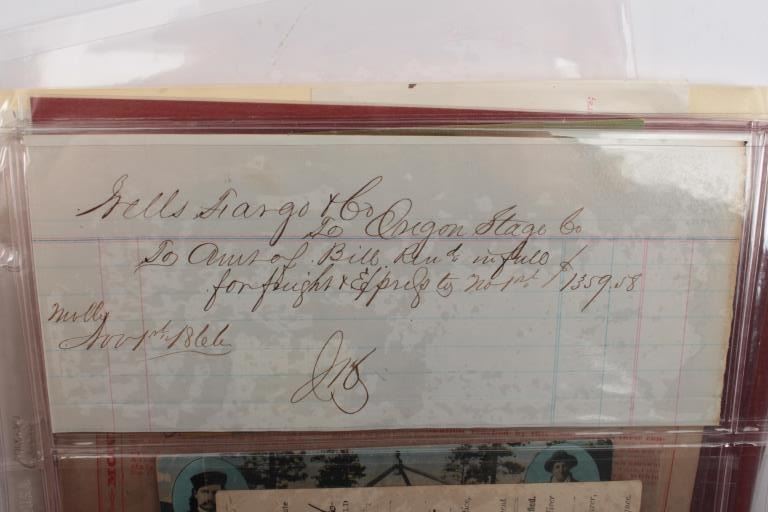 Wells Fargo & Co
To Oregon Stage Co
To Amt of Bill Rend in full
for freight & Express to Nov 1st $1359.58
Molly
Nov 1st 1866